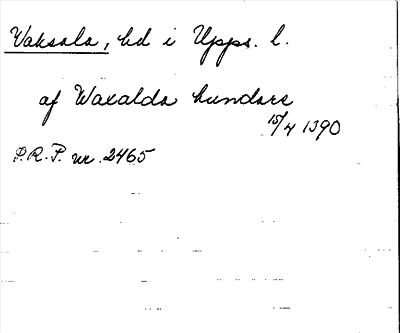 Vaksala, hd i Upps. l.
af Waxalda hundare
15/4 1390
P.R.P. nr. 2465